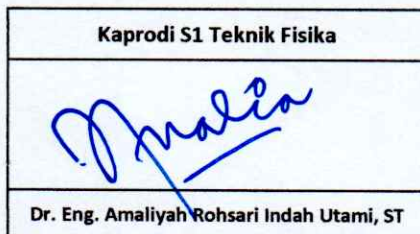 Kaprodi S1 Teknik Fisika
Amalia
Dr. Eng. Amaliyah Rohsari Indah Utami, ST